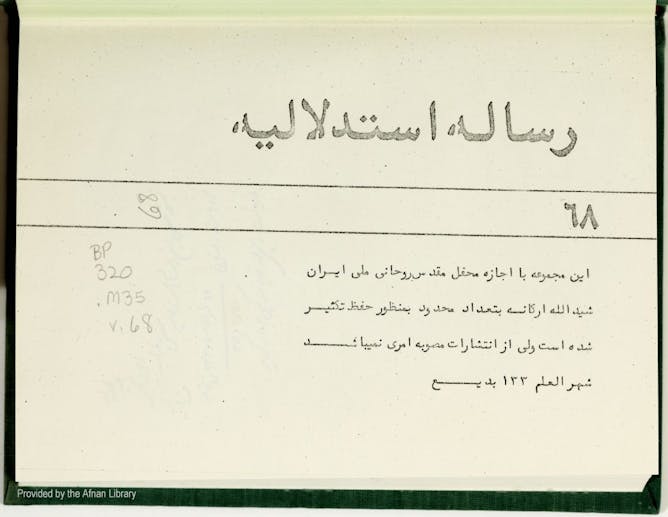 رساله استدلالیه
۶۸
68
BP
320
.M35
v.68
این مجموعه با اجازه محفل مقدس روحانی ملی ایران
شیدالله ارکانه بتعداد محدود بمنظور حفظ تکثیر
شده است ولی از انتشارات مصوبه امری نمیباشد
شهر العلم ۱۳۳ بدیع
Provided by the Afnan Library